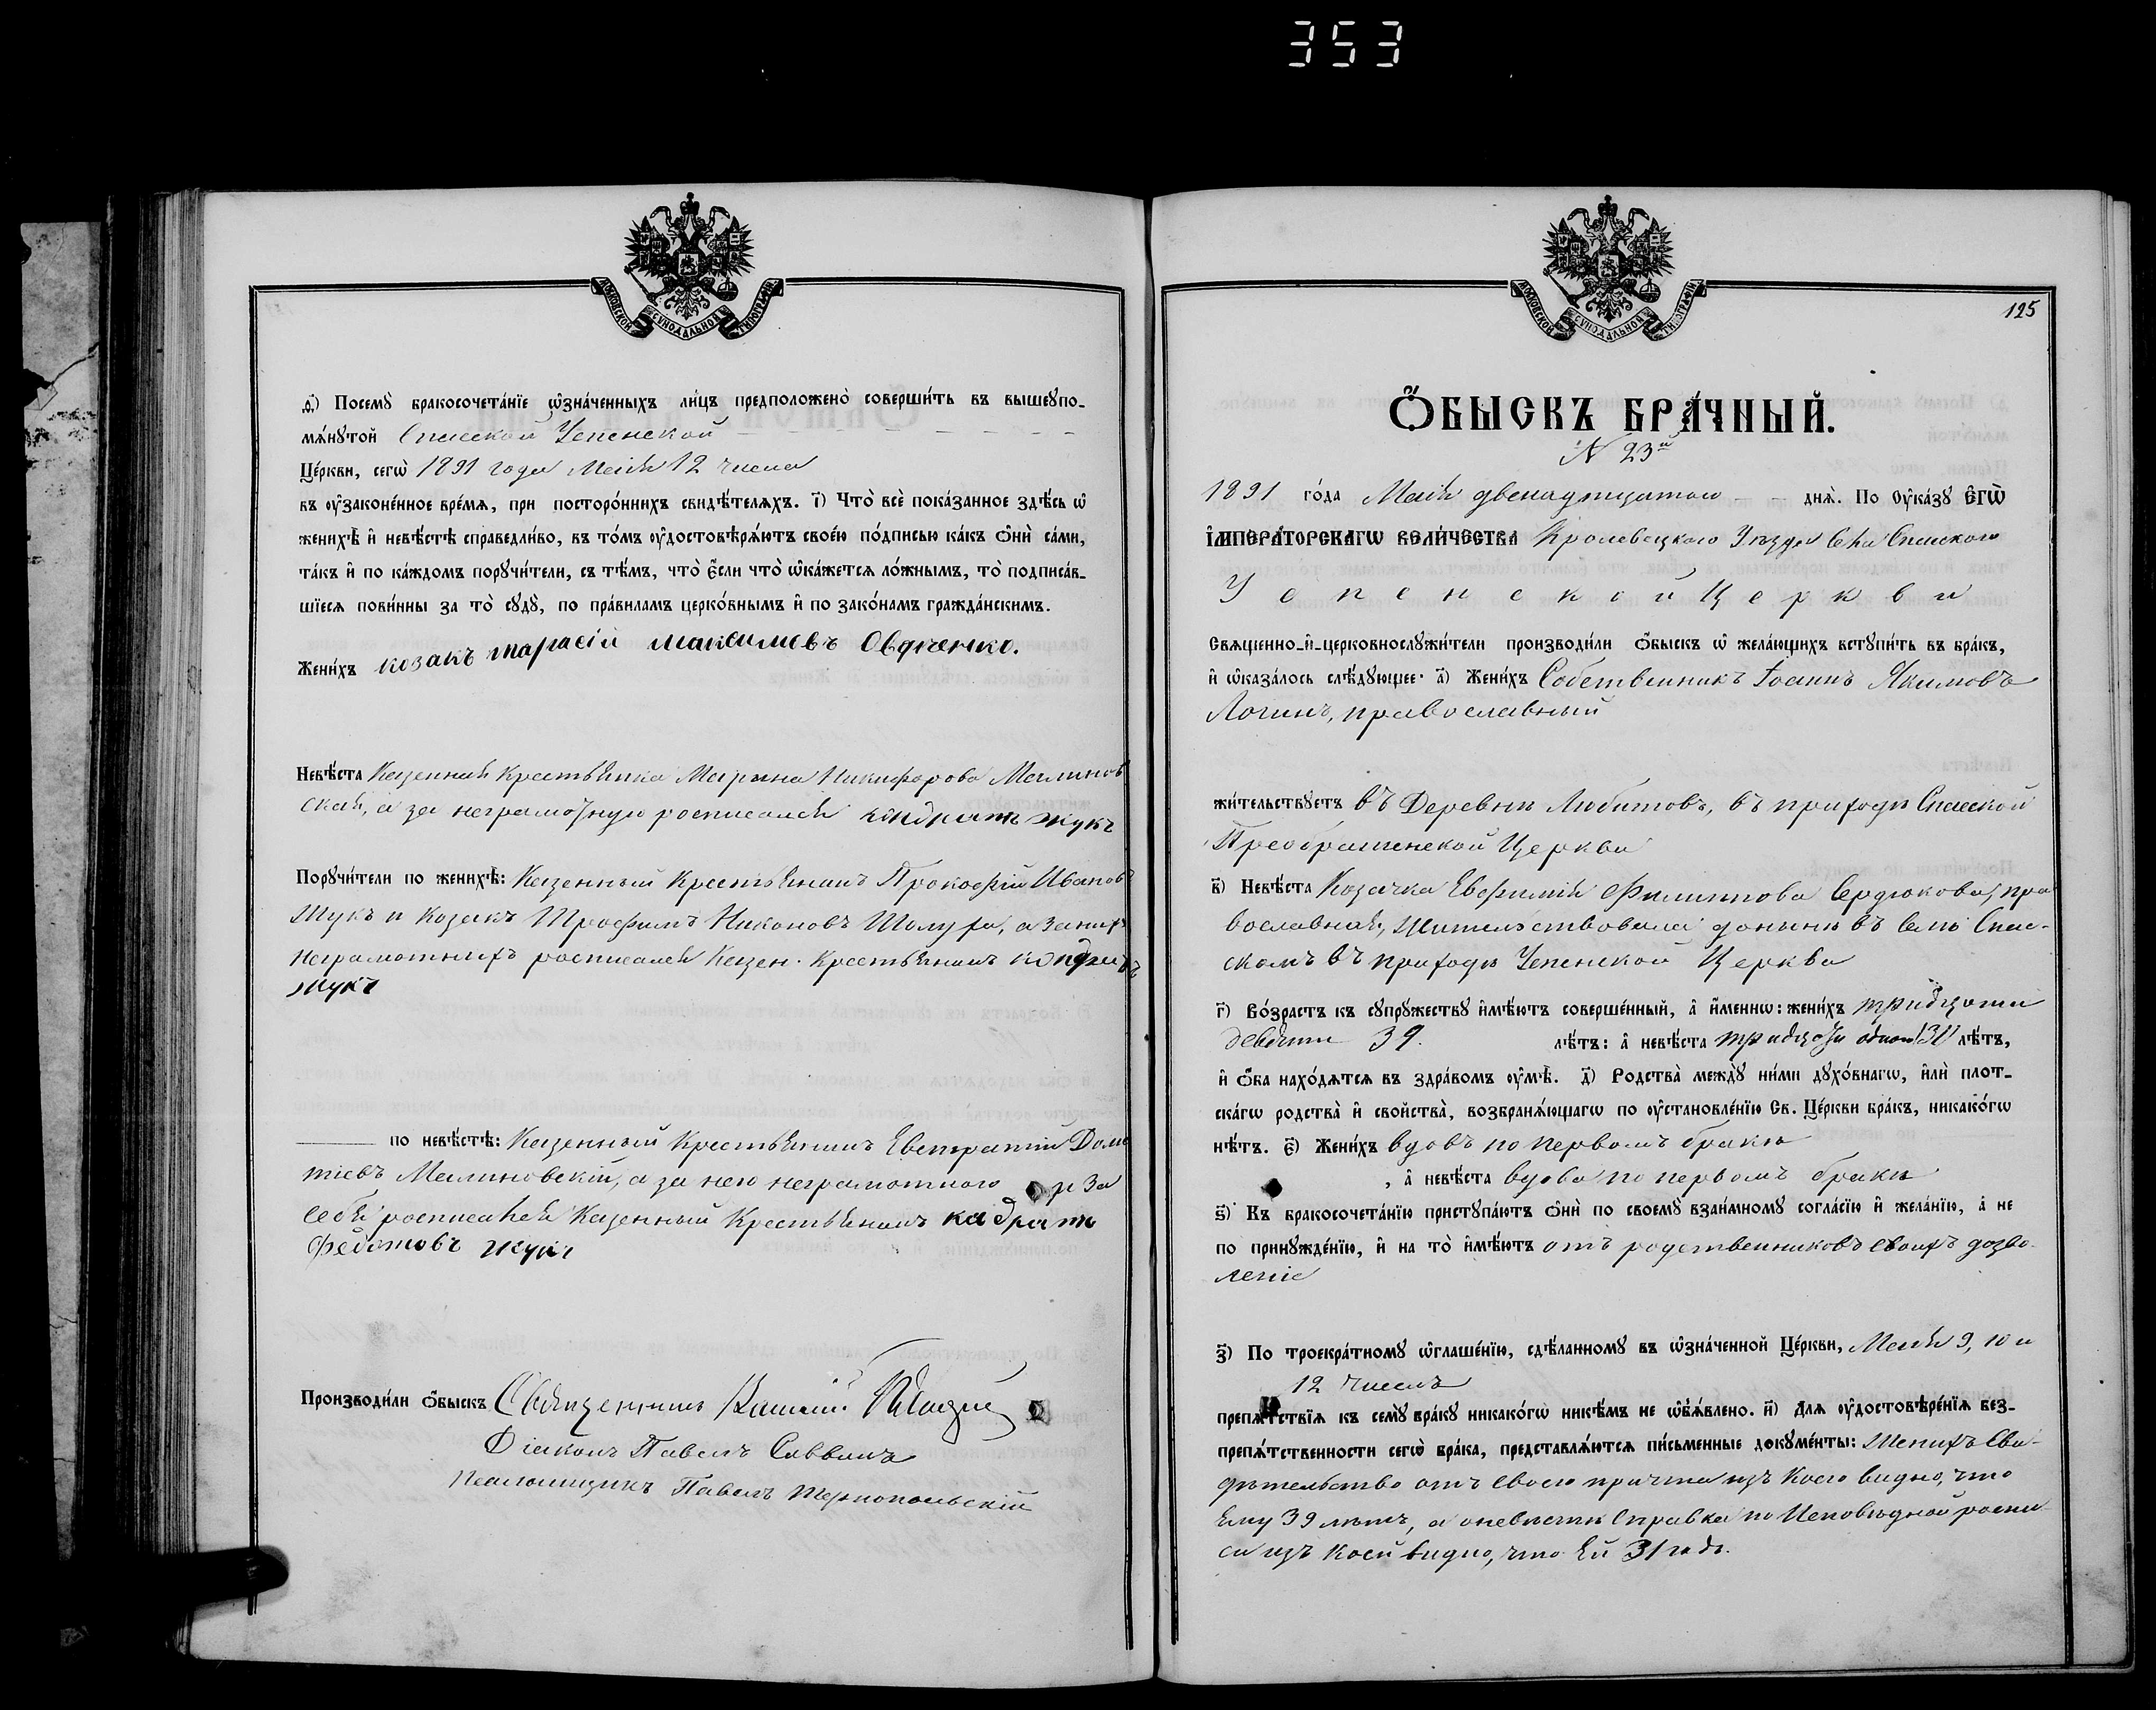 353
МОСКОВСКОЙ СѴНОДАЛЬНОЙ ТИПОГРАФІИ
ѳ҃) Посемꙋ бракосочета́нїе ѡ҆зна́ченныхъ ли́цъ предположено̀ соверши́ть въ вышеꙋпо-
мѧ́нꙋтой Спасской Успенской
Це́ркви, сегѡ̀ 1891 года Мая 12 числа
въ ᲂу҆законе́нное вре́мѧ, при посторо́ннихъ свидѣ́телѧхъ. і҃) Что̀ всѐ пока́занное здѣ́сь ѡ҆
женихѣ̀ и҆ невѣ́стѣ справедли́во, въ то́мъ ᲂу҆достовѣрѧ́ютъ свое́ю по́дписью ка́къ ѻ҆нѝ са́ми,
та́къ и҆ по ка́ждомъ порꙋчи́тели, съ тѣ́мъ, что̀ є҆́сли что̀ ѡ҆ка́жетсѧ ло́жнымъ, то̀ подписа́в-
шїесѧ пови́нны за то̀ сꙋдꙋ̀, по пра́виламъ церко́внымъ и҆ по зако́намъ гражда́нскимъ.
Жени́хъ козакъ тарасій максимовъ Овдченко.
Невѣ́ста Казенная Крестьянка Марина Никифорова Малинов
ская, а за неграмотную росписался кондратъ жукъ
Порꙋчи́тели по женихѣ̀: Казенный Крестьянинъ Прокофій Ивановъ
Жукъ и Козакъ Трофимъ Никоновъ Шолура, а за нихъ
неграмотныхъ росписался Казен. Крестьянинъ кондратъ
жукъ
по невѣ́стѣ: Казенный Крестьянинъ Евстратій Доме
тіевъ Малиновскій, а за него неграмотного и за
себя росписался Казенный Крестьянинъ кадратъ
федотовъ жукъ
Производи́ли ѻ҆́быскъ Священникъ
Діаконъ Павелъ Саввонъ
Псаломщикъ Павелъ Тернопольскій
МОСКОВСКОЙ СѴНОДАЛЬНОЙ ТИПОГРАФІИ
125
Ѻ҆́БЫСКЪ БРА́ЧНЫЙ.
№ 23й
1891 го́да Мая двенадцатого днѧ̀. По ᲂу҆ка́зꙋ Є҆ГѠ̀
І҆МПЕРА́ТОРСКАГѠ ВЕЛИ́ЧЕСТВА Кролевецкого Уѣзда села Спасского
Успенской Церкви
Свѧще́нно-и҆-церковнослꙋжи́тели производи́ли ѻ҆́быскъ ѡ҆ жела́ющихъ встꙋпи́ть въ бра́къ,
и҆ ѡ҆каза́лось слѣ́дꙋющее: а҃) Жени́хъ Собственникъ Іоаннъ Якимовъ
Логинъ, православный
жи́тельствꙋетъ въ Деревни Любитовъ, въ приходѣ Спасской
Преображенской Церкви
в҃) Невѣ́ста Козачка Евфимія Филиппова Сердюкова, пра
вославная, жительствовала донынѣ въ селѣ Спас-
скомъ въ приходѣ Успенской Церкви
г҃) Во́зрастъ къ сꙋпрꙋ́жествꙋ и҆мѣ́ютъ соверше́нный, а҆ и҆́меннѡ: жени́хъ тридцати
девяти 39. лѣ́тъ: а҆ невѣ́ста тридцати одного 31 лѣ́тъ,
и҆ ѻ҆́ба нахо́дѧтсѧ въ здра́вомъ ᲂу҆мѣ̀. д҃) Родства̀ междꙋ̀ ни́ми дꙋхо́внагѡ, и҆лѝ плот-
ска́гѡ родства̀ и҆ сво́йства̀, возбранѧ́ющагѡ по ᲂу҆становле́нїю Св. Це́ркви бра́къ, никако́гѡ
нѣ́тъ. є҃) Жени́хъ вдовъ по первомъ бракѣ
, а҆ невѣ́ста вдова по первомъ бракѣ
ѕ҃) Къ бракосочета́нїю пристꙋпа́ютъ ѻ҆нѝ по своемꙋ̀ взаи́мномꙋ согла́сїю и҆ жела́нїю, а҆ не
по принꙋжде́нїю, и҆ на то̀ и҆мѣ́ютъ отъ родственниковъ своихъ дозво-
леніе
з҃) По троекра́тномꙋ ѡ҆глаше́нїю, сдѣ́ланномꙋ въ ѡ҆зна́ченной Це́ркви, Мая 9, 10 и
12 числъ
препѧ́тствїѧ къ семꙋ̀ бра́кꙋ никако́гѡ никѣ́мъ не ѡ҆б̾ѧ́влено. и҃) Длѧ ᲂу҆достовѣре́нїѧ без-
препѧ́тственности сегѡ̀ бра́ка, представлѧ́ютсѧ пи́сьменные докꙋме́нты: Женихъ Сви-
дѣтельство отъ своего причта изъ коего видно, что
ему 39 лѣтъ, а о невѣстѣ справка по Исповѣдной роспи
си изъ коей видно, что ей 31 годъ.